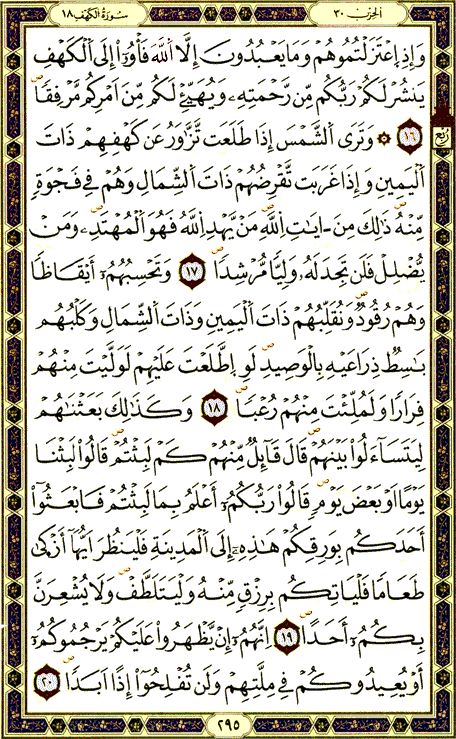 الحزب ٣٠
سُورَةُ الكَهْفِ ١٨
وَإِذِ اِعْتَزَلْتُمُوهُمْ وَمَا يَعْبُدُونَ إِلَّا اَللَّهَ فَأْوُۥٓاْ إِلَى اَلْكَهْفِ
يَنشُرْ لَكُمْ رَبُّكُم مِّن رَّحْمَتِهِۦ وَيُهَيِّئْ لَكُم مِّنَ اَمْرِكُم مَّرْفِقاً
١٦ ۞ وَتَرَى اَلشَّمْسَ إِذَا طَلَعَت تَّزَّٰوَرُ عَن كَهْفِهِمْ ذَاتَ
ربع
اَلْيَمِينِ وَإِذَا غَرَبَت تَّقْرِضُهُمْ ذَاتَ اَلشِّمَالِ وَهُمْ فِي فَجْوَةٍ
مِّنْهُ ذَٰلِكَ مِنَ ـايَٰتِ اِللَّهِ مَنْ يَّهْدِ اِللَّهُ فَهُوَ اَلْمُهْتَدِۦ وَمَنْ
يُّضْلِلْ فَلَن تَجِدَ لَهُۥ وَلِيّاً مُّرْشِداً ١٧ وَتَحْسِبُهُمُۥٓ أَيْقَاظاً
وَهُمْ رُقُودٌ وَنُقَلِّبُهُمْ ذَاتَ اَلْيَمِينِ وَذَاتَ اَلشِّمَالِ وَكَلْبُهُم
بَٰسِطٌ ذِرَاعَيْهِ بِالْوَصِيدِ لَوِ اِطَّلَعْتَ عَلَيْهِمْ لَوَلَّيْتَ مِنْهُمْ
فِرَاراً وَلَمُلِّئْتَ مِنْهُمْ رُعْباً ١٨ وَكَذَٰلِكَ بَعَثْنَٰهُمْ
لِيَتَسَآءَلُواْ بَيْنَهُمْ قَالَ قَآئِلٌ مِّنْهُمْ كَمْ لَبِثْتُمْ قَالُواْ لَبِثْنَا
يَوْماً اَوْ بَعْضَ يَوْمٍ قَالُواْ رَبُّكُمُۥٓ أَعْلَمُ بِمَا لَبِثْتُمْ فَابْعَثُوٓاْ
أَحَدَكُم بِوَرِقِكُمْ هَٰذِهِۦٓ إِلَى اَلْمَدِينَةِ فَلْيَنظُرَ اَيُّهَآ أَزْكَىٰ
طَعَاماً فَلْيَاتِكُم بِرِزْقٍ مِّنْهُ وَلْيَتَلَطَّفْ وَلَا يُشْعِرَنَّ
بِكُمُۥٓ أَحَداً ١٩ اِنَّهُمُۥٓ إِنْ يَّظْهَرُواْ عَلَيْكُمْ يَرْجُمُوكُمُۥٓ
أَوْ يُعِيدُوكُمْ فِي مِلَّتِهِمْ وَلَن تُفْلِحُوٓاْ إِذاً اَبَداً ٢٠
٢٩٥